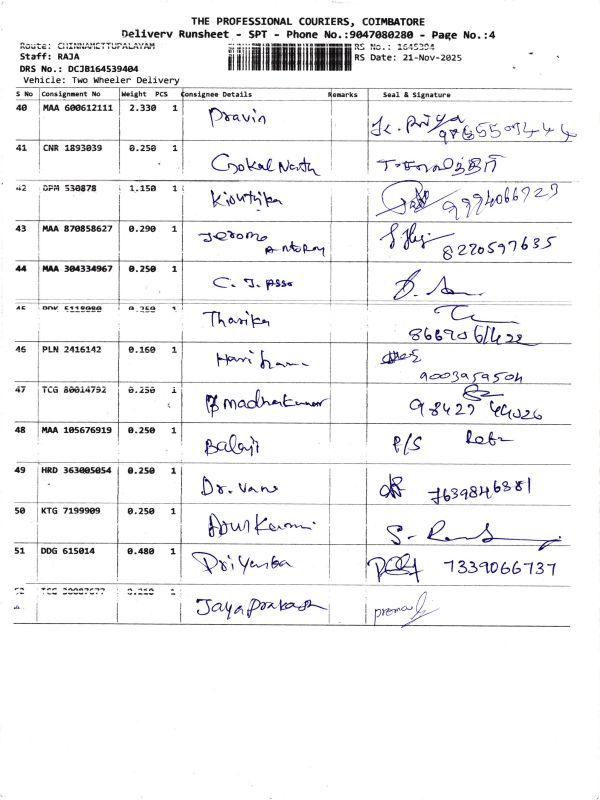 THE PROFESSIONAL COURIERS, COIMBATORE
Delivery Runsheet - SPT - Phone No.:9047080280 - Page No.:4
Route: CHINNAMETTUPALAYAM RS No.: 1645394
Staff: RAJA RS Date: 21-Nov-2025
DRS No.: DCJB164539404
Vehicle: Two Wheeler Delivery
S No Consignment No Weight PCS Consignee Details Remarks Seal & Signature
40 MAA 600612111 2.330 1 Pravin
41 CNR 1893039 0.250 1 Gokal Nath
42 DPM 530878 1.150 1 Kiouthika 9994066929
43 MAA 870858627 0.290 1 Jerome Antony 8220597635
44 MAA 304334967 0.250 1 C. J.
45 1 Tharika
46 PLN 2416142 0.160 1 9003959504
47 TCG 80014792 0.250 1 Madhankumar 98427 44026
48 MAA 105676919 0.250 1 Balaji P/S
49 HRD 363005054 0.250 1 Dr. Vane 7639846381
50 KTG 7199909 0.250 1
51 DDG 615014 0.480 1 Priyanka 7339066737
52 1 Jayaprakash prema